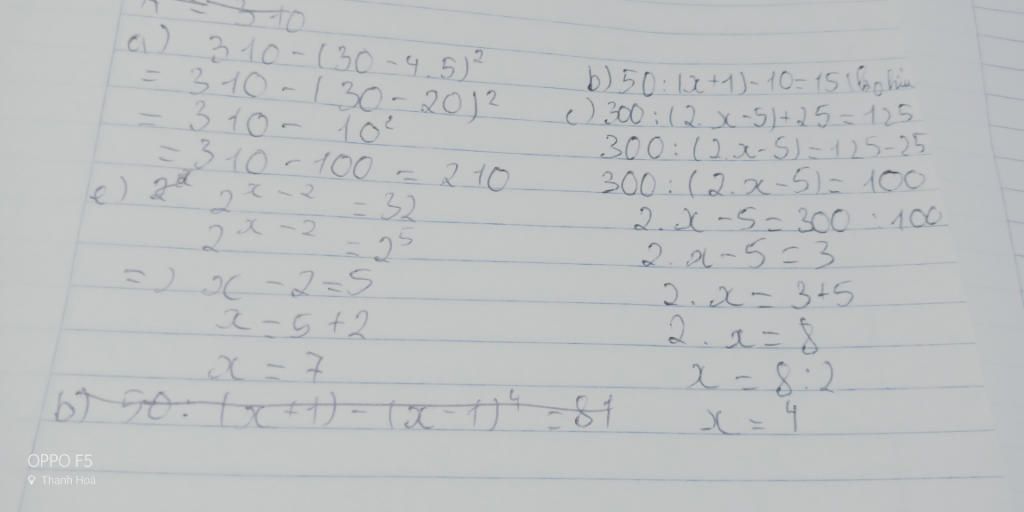 = 310
a) 310 - (30 - 4.5)²
= 310 - (30 - 20)²
= 310 - 10²
= 310 - 100 = 210
e) 2ˣ 2ˣ⁻² = 32
2ˣ⁻² = 2⁵
=) x - 2 = 5
x = 5 + 2
x = 7
b) 50 : (x+1) - (x-1)⁴ = 81
b) 50 : (x+1) - 10 = 15
c) 300 : (2.x-5) + 25 = 125
300 : (2.x-5) = 125-25
300 : (2.x-5) = 100
2.x-5 = 300 : 100
2.x-5 = 3
2.x = 3+5
2.x = 8
x = 8:2
x = 4
OPPO F5
Thanh Hoá